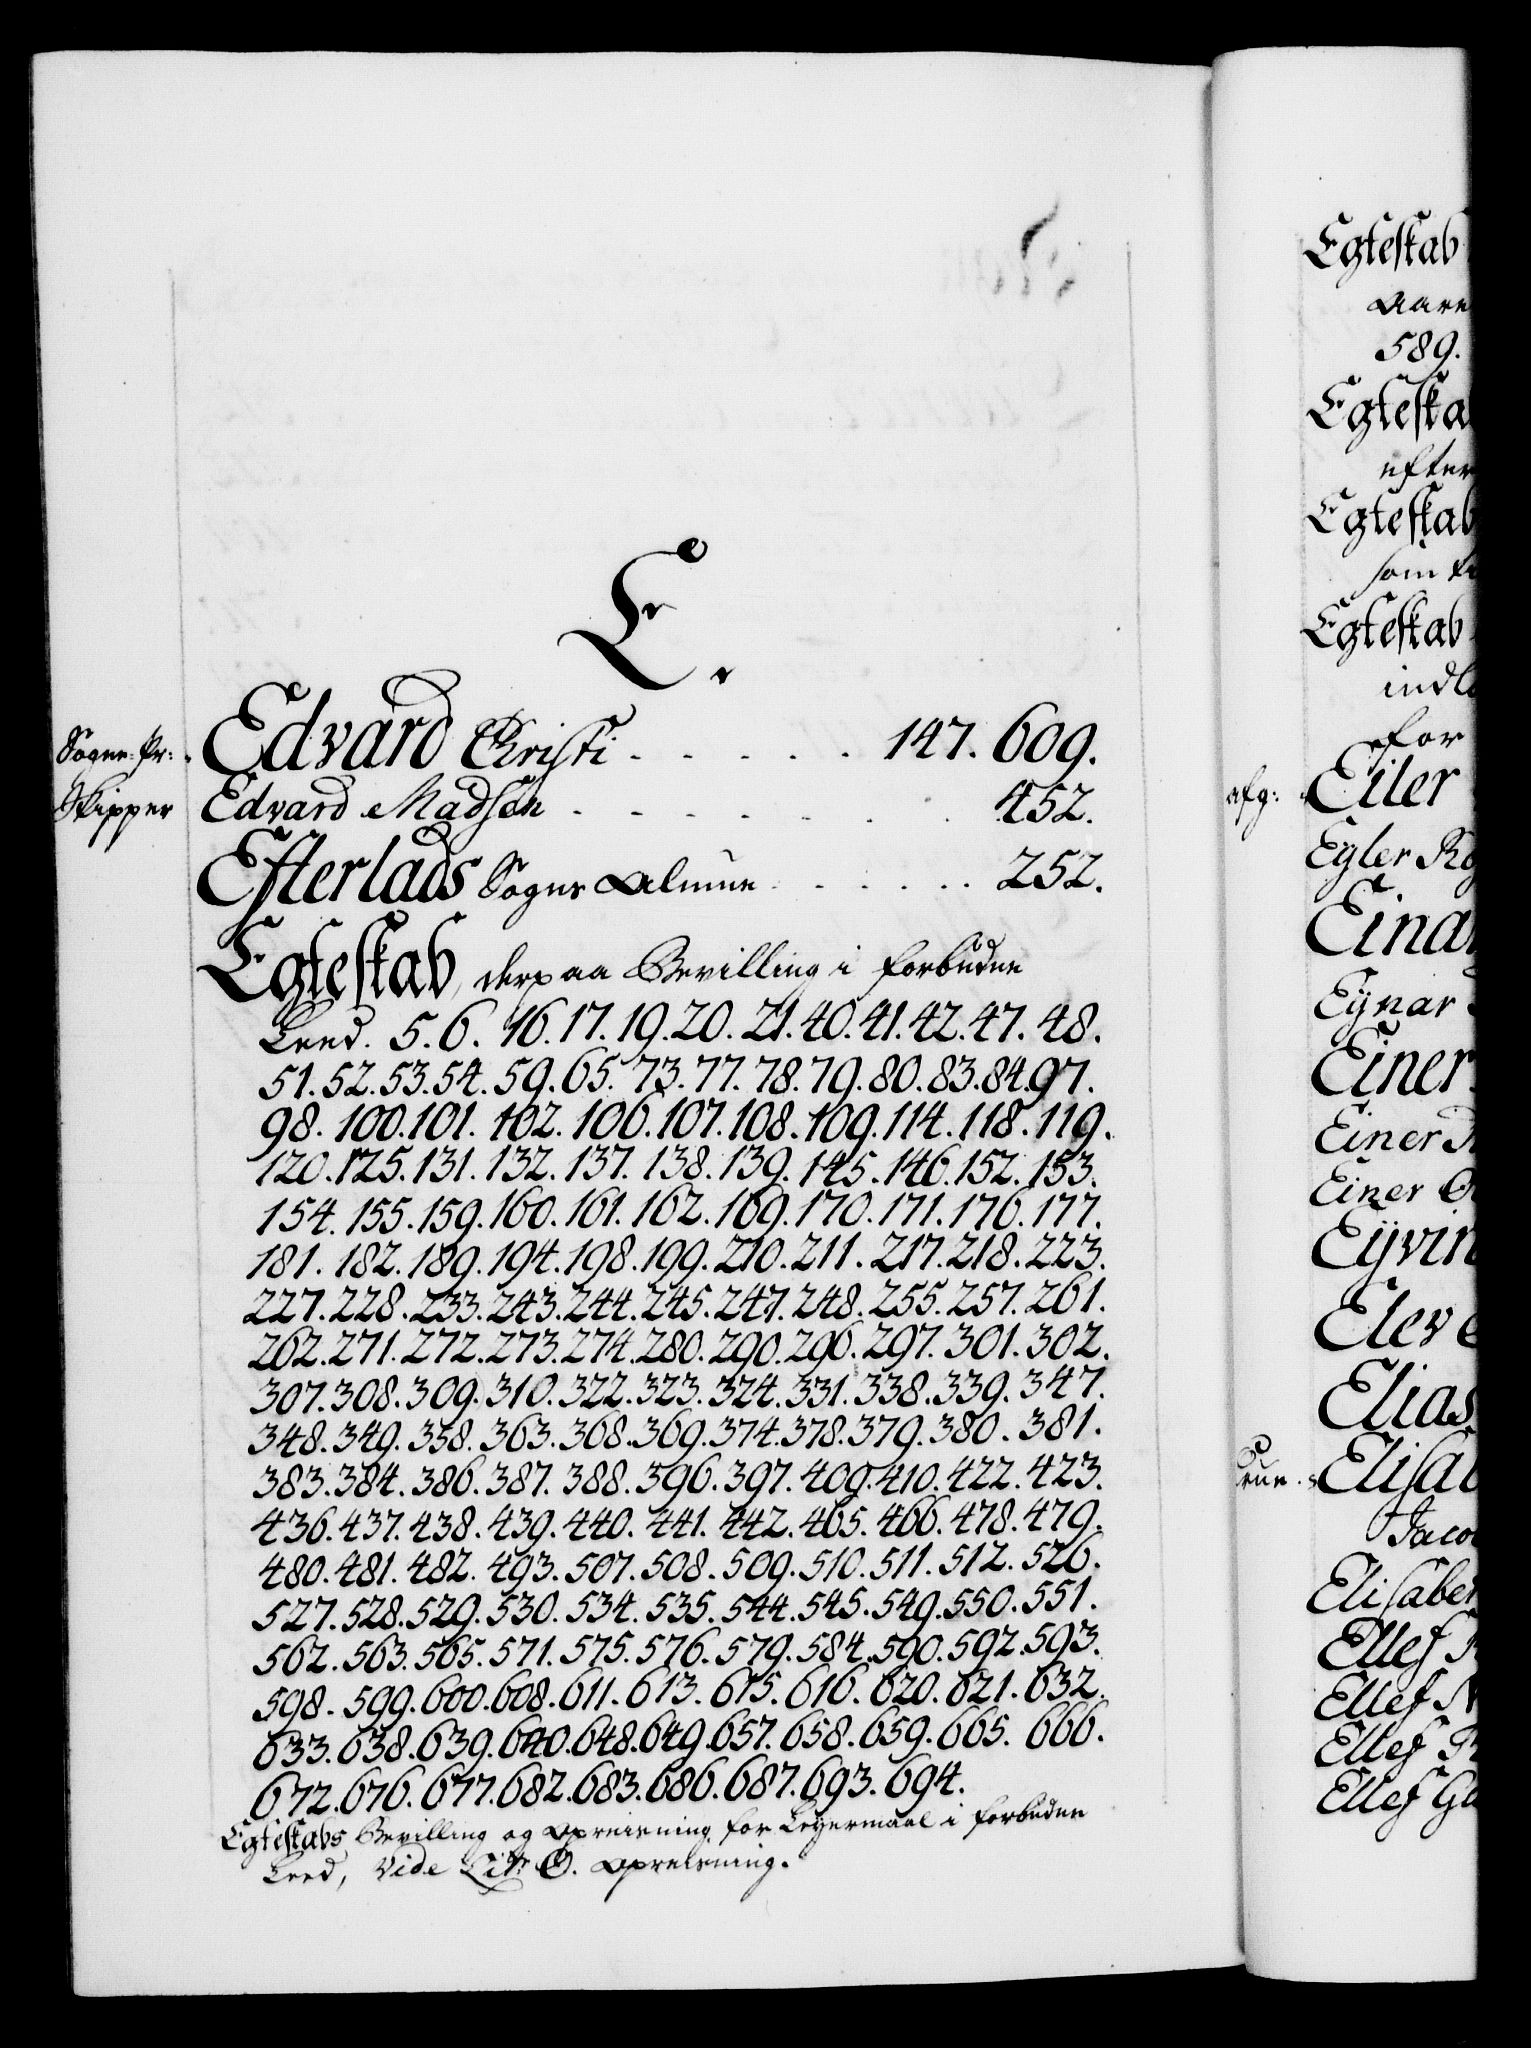 E.
Sogne-Pr: Edvard Christi . . . . . 147. 609.
Skipper Edvard Madsen . . . . . . . 452.
Efterlads Sogns Almue . . . . . 252.
Egteskab, derpaa Bevilling i forbudne
Leed. 5. 6. 16. 17. 19. 20. 21. 40. 41. 42. 47. 48.
51. 52. 53. 54. 59. 65. 73. 77. 78. 79. 80. 83. 84. 97.
98. 100. 101. 102. 106. 107. 108. 109. 114. 118. 119.
120. 125. 131. 132. 137. 138. 139. 145. 146. 152. 153.
154. 155. 159. 160. 161. 162. 169. 170. 171. 176. 177.
181. 182. 189. 194. 198. 199. 210. 211. 217. 218. 223.
227. 228. 233. 243. 244. 245. 247. 248. 255. 257. 261.
262. 271. 272. 273. 274. 280. 290. 296. 297. 301. 302.
307. 308. 309. 310. 322. 323. 324. 331. 338. 339. 347.
348. 349. 358. 363. 368. 369. 374. 378. 379. 380. 381.
383. 384. 386. 387. 388. 396. 397. 409. 410. 422. 423.
436. 437. 438. 439. 440. 441. 442. 465. 466. 478. 479.
480. 481. 482. 493. 507. 508. 509. 510. 511. 512. 526.
527. 528. 529. 530. 534. 535. 544. 545. 549. 550. 551.
562. 563. 565. 571. 575. 576. 579. 584. 590. 592. 593.
598. 599. 600. 608. 611. 613. 615. 616. 620. 621. 632.
633. 638. 639. 640. 648. 649. 657. 658. 659. 665. 666.
672. 676. 677. 682. 683. 686. 687. 693. 694.
Egteskabs Bevilling og Opreisning for Leyermaal i forbudne
Leed, vide Litr O. Opreisning.
Egteskab
Aare
589.
Egteska
efter
Egteskab
som
Egteskab
indl
for
afg: Eiler
Egler
Einar
Eynar
Einer
Einer
Einer
Eyvin
Elev
Elias
Elisab
Jaco
Elisabe
Ellef
Ellef
Ellef
Ellef